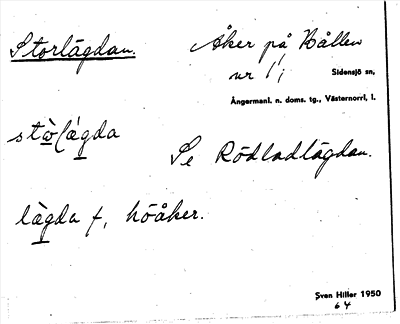 Storlägdan.
Åker på Bållen
nr 1;
Sidensjö sn,
Ångermanl. n. doms. tg., Västernorrl, l.
Se Rödladlägdan.
lägda f, höåker.
Sven Hiller 1950
64